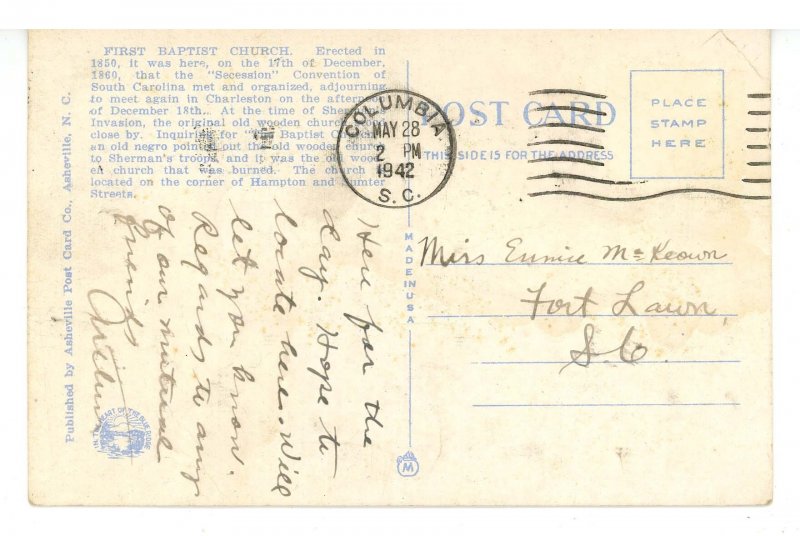 FIRST BAPTIST CHURCH. Erected in
1850, it was here, on the 17th of December,
1860, that the "Secession" Convention of
South Carolina met and organized, adjourning
to meet again in Charleston on the afternoon
of December 18th. At the time of Sherman's
Invasion, the original old wooden church stood
close by. Inquiring for "the Baptist Church"
an old negro pointed out the old wooden church
to Sherman's troops and it was the old wood-
en church that was burned. The church is
located on the corner of Hampton and Sumter
Streets.
Published by Asheville Post Card Co., Asheville, N. C.
IN THE HEART OF THE BLUE RIDGE
Here for the
day. Hope to
locate here. Will
let you know.
Regards to any
of our mutual
friends
COLUMBIA,
MAY 28
2 PM
1942
S. C.
POST CARD
THIS SIDE IS FOR THE ADDRESS
PLACE
STAMP
HERE
MADE IN USA
M
Miss Eunice McKeown
Fort Lawn
S.C.